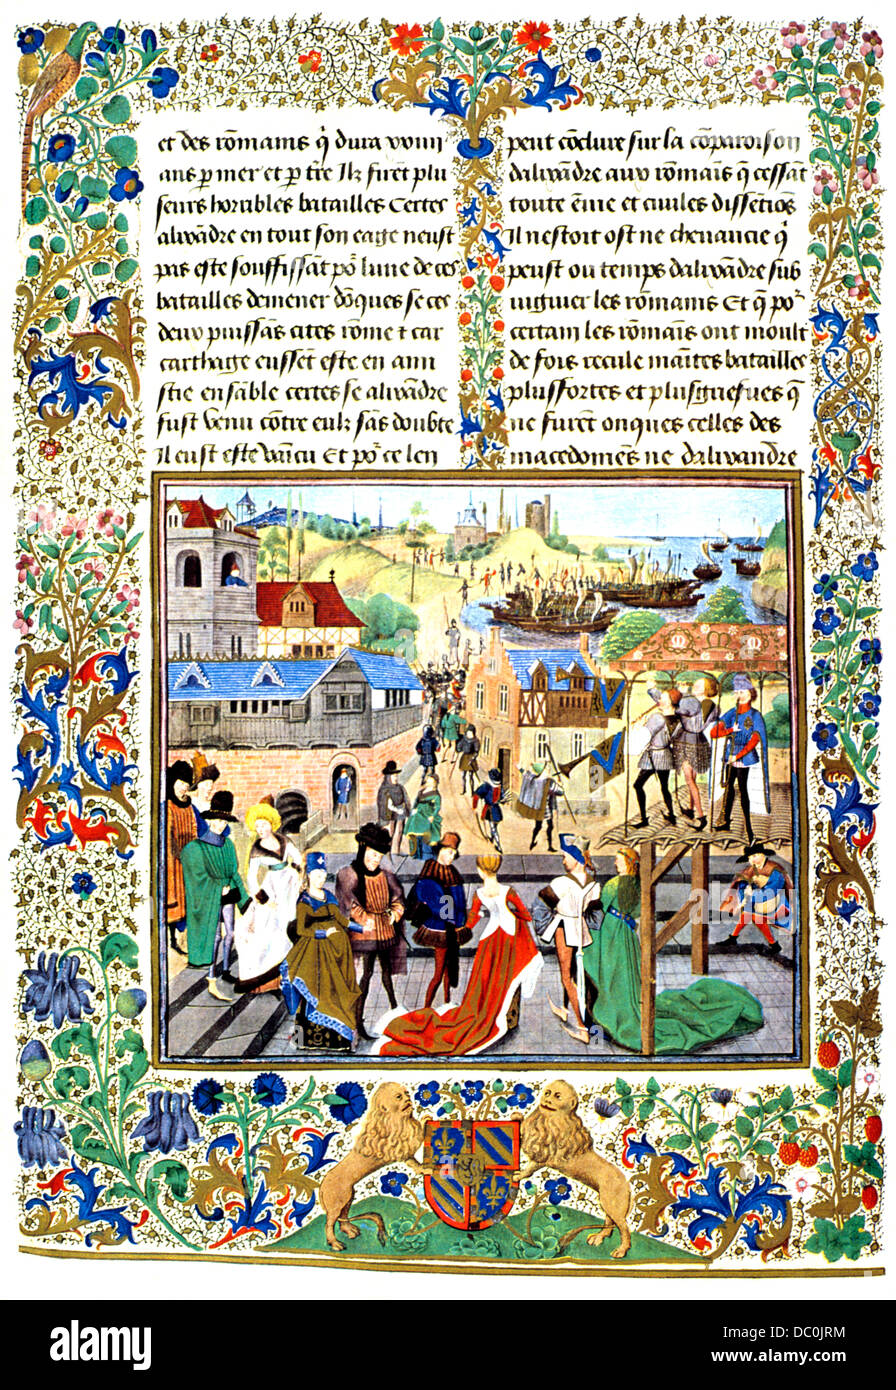 et des rōmains q̄ dura vvint
ans p̄ mer et p̄ t̄re Ilz furēt plu
seurs horribles batailles Certes
alixādre en tout son eage neust
pas este souffissāt po᷑ lune de ces
batailles demener dōques se ces
deux puissās cites rōme ⁊ car
carthage eussēt este en ami
stie ensāble certes se alixādre
fust venu cōtre eulx sās doubte
Il eust este vaīcu Et po᷑ ce len
peut cōclure sur la cōparoison
dalixādre aux rōmais q̄ cessāt
toute ēuie et ciuiles dissētiōs
Il nestoit ost ne cheuaucie q̄
peust ou temps dalixādre sub
iuguer les rōmains Et q̄ po᷑
certain les rōmais ont moult
de fois recule māītes batailles
plus fortes et plus griefues q̄
ne furēt onques celles des
macedomēs ne dalixandre
alamy
a
alamy
a
alamy
alamy
Image ID: DC0JRM
www.alamy.com